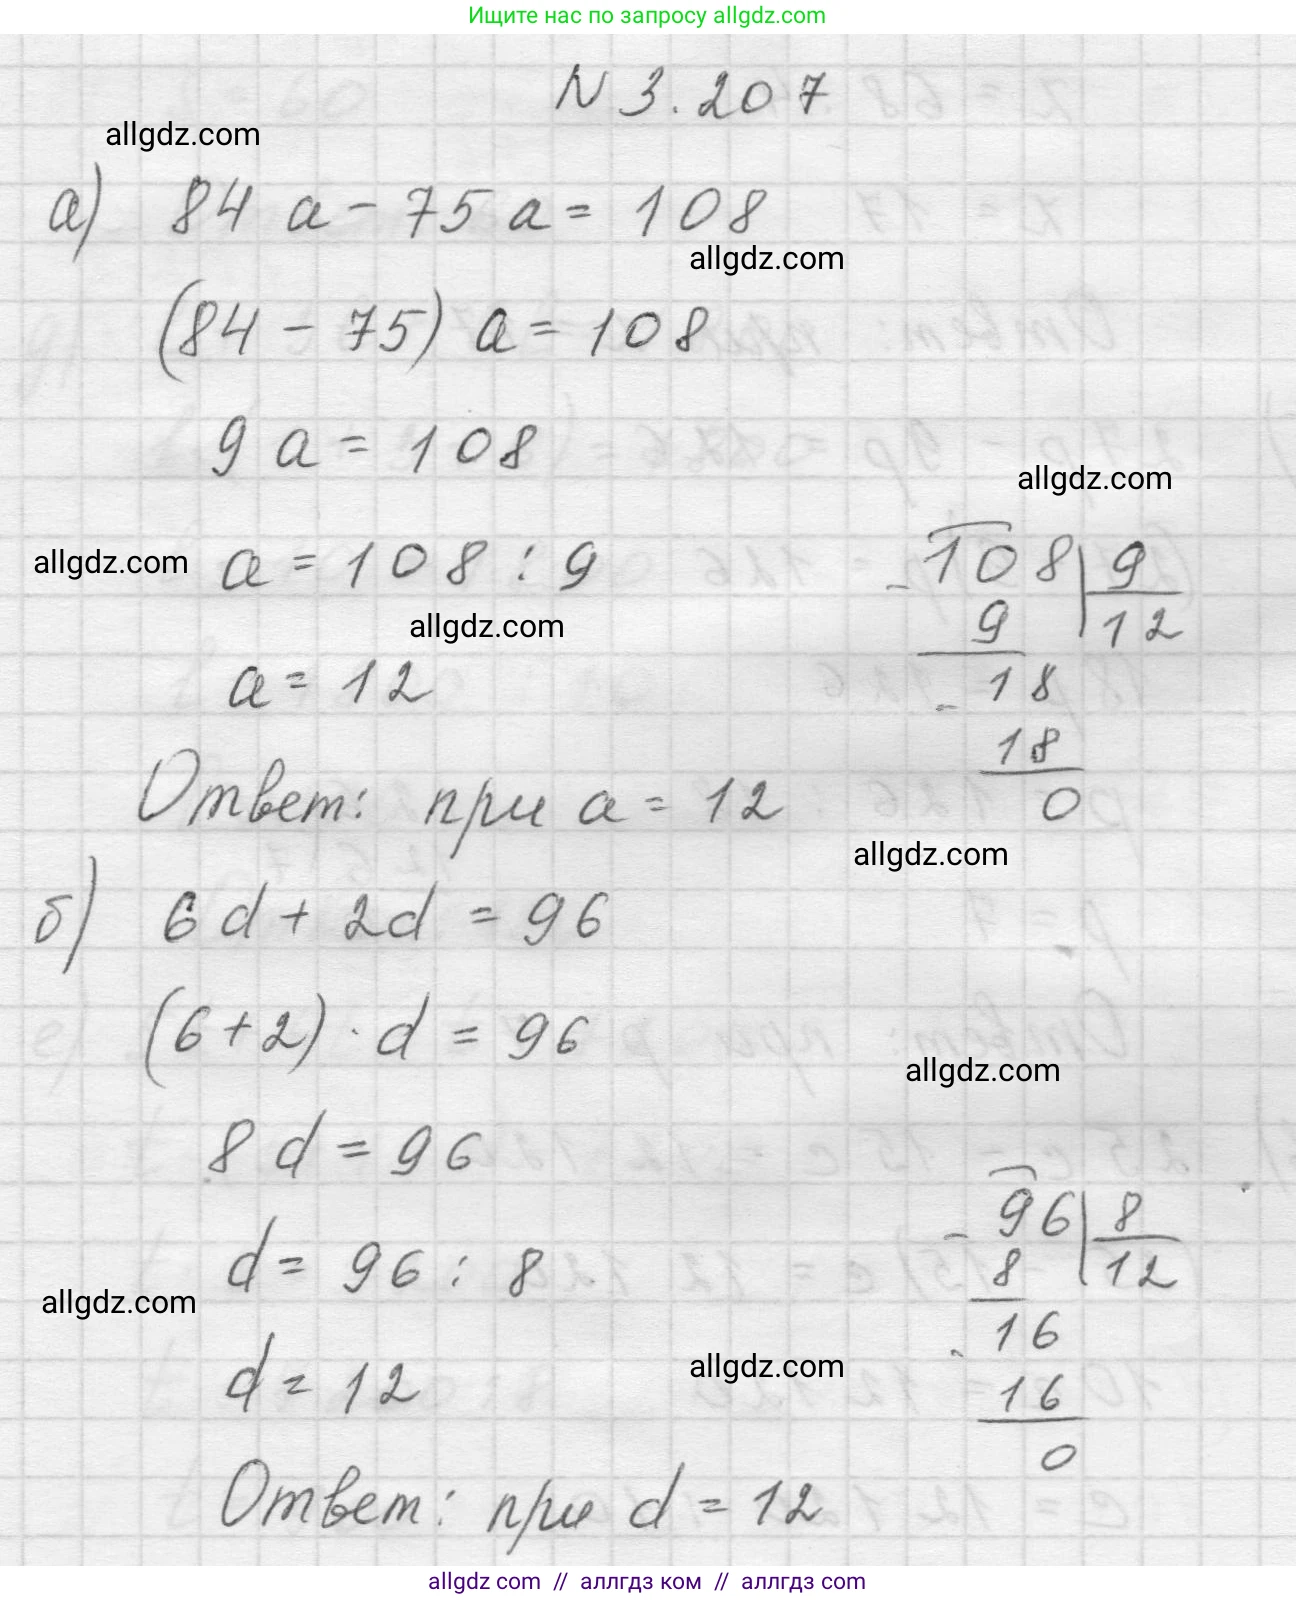 Ищите нас по запросу allgdz.com
N 3.207
allgdz.com
а) 84 a - 75 a = 108
allgdz.com
(84 - 75) a = 108
9 a = 108
allgdz.com
allgdz.com
a = 108 : 9
allgdz.com
a = 12
- 108 | 9
9 | 12
- 18
18
0
Ответ: при a = 12
allgdz.com
б) 6d + 2d = 96
(6 + 2) · d = 96
allgdz.com
8 d = 96
d = 96 : 8
allgdz.com
d = 12
allgdz.com
- 96 | 8
8 | 12
- 16
16
0
Ответ: при d = 12
allgdz com // аллгдз ком // аллгдз com